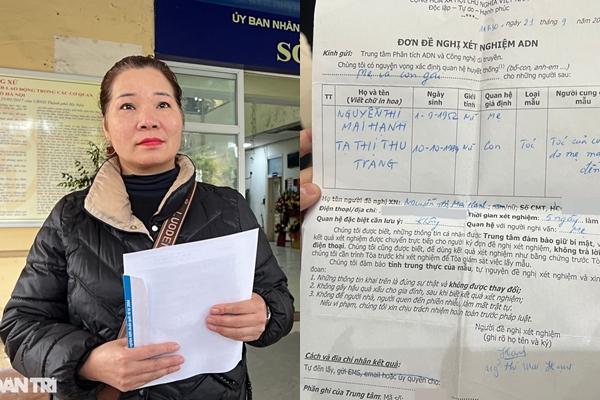 ỦY BAN NHÂN
SỞ
XỬ
LAO ĐỘNG TRONG CÁC CƠ QUAN
HÀ NỘI
DÂN TRÍ
CỘNG HÒA XÃ HỘI CHỦ NGHĨA VIỆT NAM
Độc lập - Tự do - Hạnh phúc
ngày 21 tháng 9
ĐƠN ĐỀ NGHỊ XÉT NGHIỆM ADN
Kính gửi: Trung tâm Phân tích ADN và Công nghệ di truyền.
Chúng tôi có nguyện vọng xác định quan hệ huyết thống (bố-con, anh-em ...)
Mẹ và con gái cho những người sau:
TT Họ và tên (Viết chữ in hoa) Ngày sinh Giới tính Quan hệ giả định Loại mẫu Người cung
NGUYỄN THỊ MAI HẠNH 1-9-1952 Nữ Mẹ
TẠ THỊ THU TRANG 10-10-1984 Nữ Con Tóc Tóc của
do mẹ
Họ tên người đề nghị XN: Nguyễn Thị Mai Hạnh, nam/nữ; Số CMT, HC
Điện thoại/địa chỉ: Thời gian xét nghiệm: 5 ngày
Quan hệ đặc biệt cần lưu ý: Không Quan hệ với người nghi vấn: Mẹ
Chúng tôi được biết, những thông tin cá nhân được Trung tâm đảm bảo giữ bí mật,
kết quả xét nghiệm được chuyển trực tiếp cho người ký đơn đề nghị xét nghiệm, không trả lời
điện thoại. Chúng tôi cũng được biết, để dùng kết quả xét nghiệm như bằng chứng trước Tòa
chúng tôi cần trình Tòa trước khi xét nghiệm để Tòa giám sát việc lấy mẫu.
Chúng tôi đảm bảo tính trung thực của mẫu, tự nguyện đề nghị xét nghiệm và xin
đoan:
1. Những thông tin khai trên là đúng sự thật và không được thay đổi;
2. Không gây hậu quả xấu cho gia đình, sau khi biết kết quả xét nghiệm;
3. Không để người nhà, người quen đến phiền nhiễu, làm mất trật tự.
Nếu vi phạm, chúng tôi xin chịu trách nhiệm hoàn toàn trước pháp luật.
Người đề nghị xét nghiệm
(ghi rõ họ tên và ký)
Cách và địa chỉ nhận kết quả:
Tự đến lấy, gửi EMS, email hoặc ủy quyền cho:
Phần ghi của Trung tâm: Mã số: